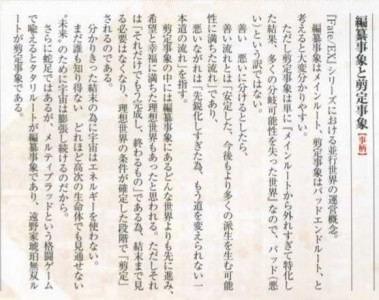 編纂事象と剪定事象【事柄】
『Fate/EX』シリーズにおける並行世界の運営概念。
編纂事象はメインルート、剪定事象はバッドエンドルート、と
考えると大変分かりやすい。
ただし剪定事象は単に『メインルートから外れすぎて特化し
た結果、多くの分岐可能性を失った世界』なので、バッド（悪
い）という訳ではない。
善い 悪いに分けるとしたら、
善い流れとは“安定した、今後もより多くの派生を生む可能
性に満ちた流れ”であり、
悪いながれは“先鋭化しすぎた為、もう道を変えられない一
本道の流れ”を指す。
剪定事象の中には編纂事象にあるどんな世界よりも先に進み、
希望と幸福に満ちた理想世界もあったと思われる。ただしそれ
は“それだけでもう完成し、終わるもの”である為、結末まで見
る必要はなくなり、理想世界の条件が確定した段階で『剪定』
されるのである。
分かりきった結末の為に宇宙はエネルギーを使わない。
まだ誰も知り得ない どれほど高次の生命体でも見通せない
“未来”のために宇宙は膨張し続けるのだから。
さらに蛇足ではあるが、メルティブラッドという格闘ゲーム
で喩えるとタタリルートが編纂事象であり、遠野家琥珀無双ル
ートが剪定事象である。